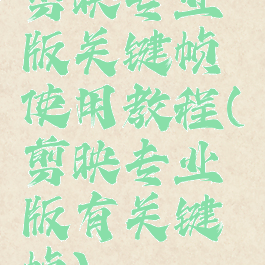 剪映专业
版关键帧
使用教程(
剪映专业
版有关键
帧)